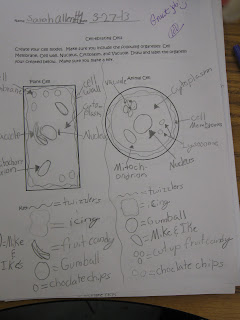 Name: 3-27-13
Great job
Comparing Cells
Create your own cells. Make sure you include the following organelles: Cell
Membrane, Cell Wall, Nucleus, Cytoplasm, and Vacuole. Draw and label the organelles
your created below. Make sure you make a key.
Plant Cell
Animal Cell
Cell wall
Vacuole
Cytoplasm
Cell Membrane
Nucleus
Lysosome
Nucleus
Mitochondrion
Key:
=twizzlers
=icing
=Mike & Ikes
=fruit candy
=Gumball
=choclate chips
=twizzlers
=icing
=Gumball
=Mike & Ike
=cut up fruit candy
=choclate chips